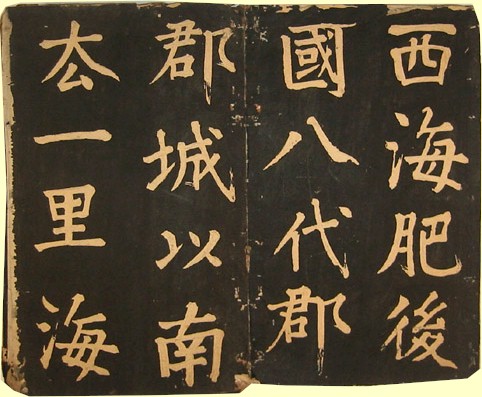 西海肥後
國八代郡
郡城以南
厺一里海